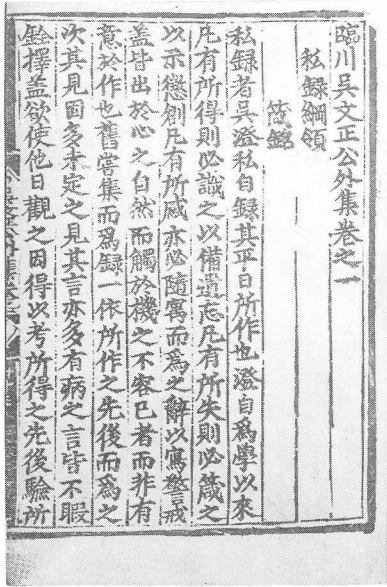 臨川吳文正公外集卷之一
私録綱領
箴銘
私録者吳澄私自録其平日所作也澄自爲學以來
凡有所得則必識之以備遺忘凡有所失則必箴之
以示懲創凡有所感亦必隨寓而爲之辭以寫警戒
盖皆出於心之自然而觸於機之不容已者而非有
意於作也舊嘗集而爲録一依所作之先後而爲之
次其見固多未定之見其言亦多有病之言皆不暇
銓擇盖欲使他日觀之因得以考所得之先後驗所